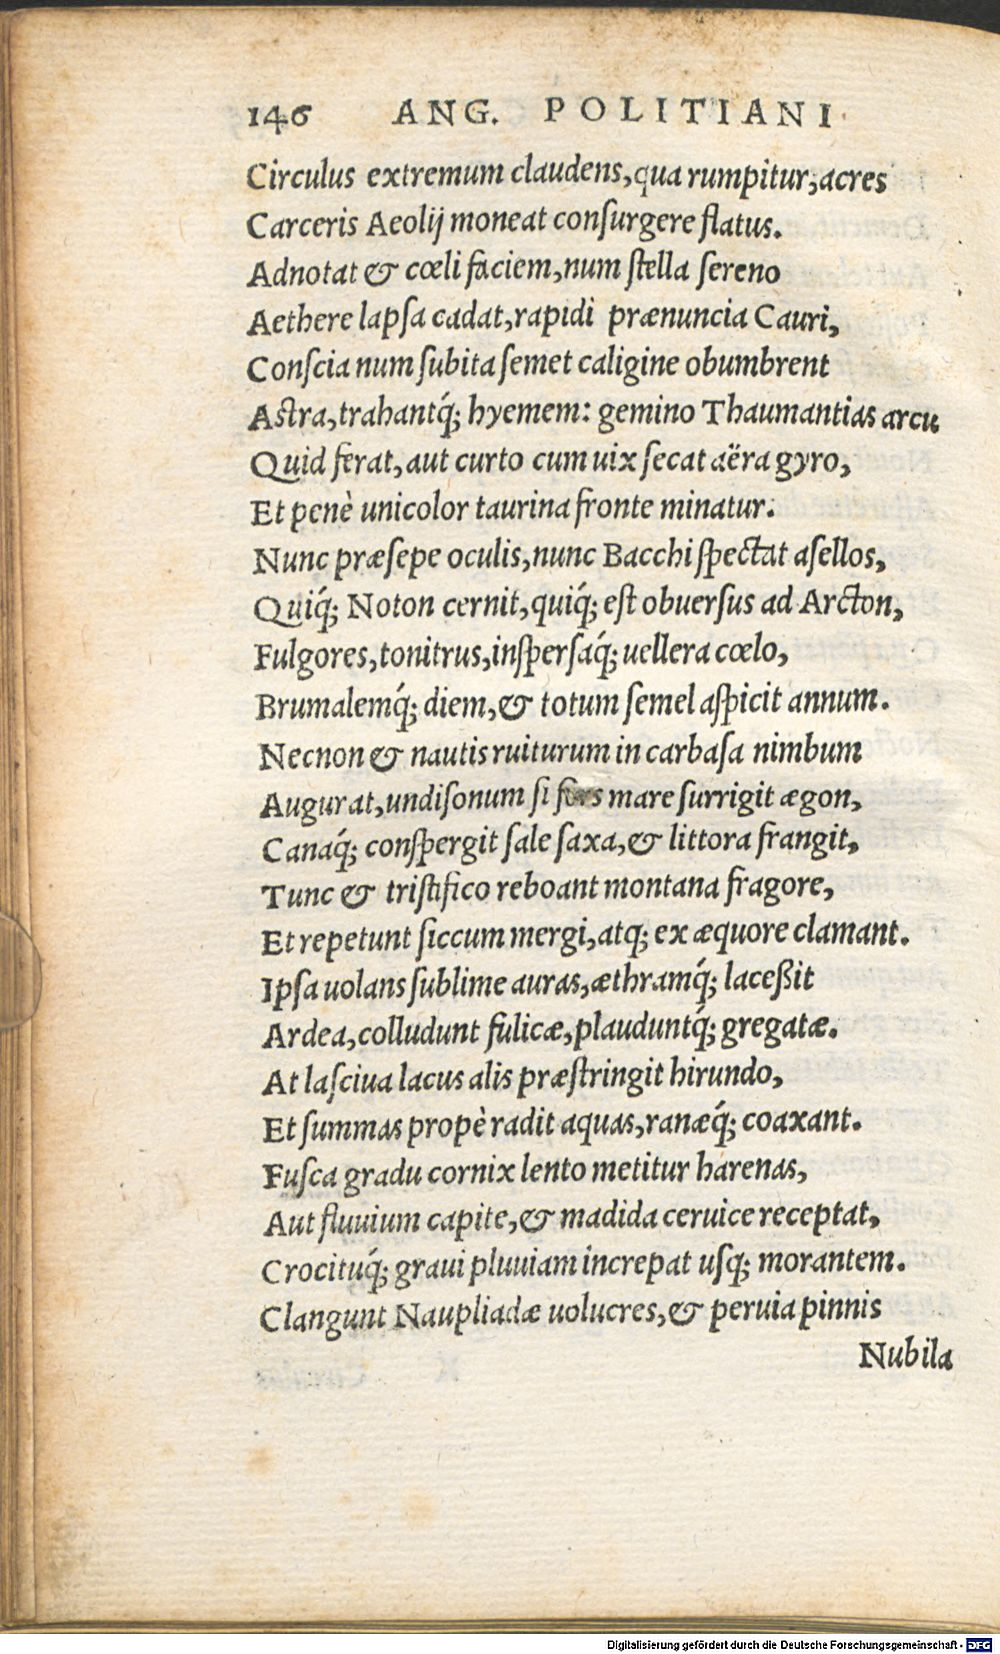 146 ANG. POLITIANI
Circulus extremum claudens, qua rumpitur, acres
Carceris Aeolij moneat conſurgere flatus.
Adnotat & cœli faciem, num ſtella ſereno
Aethere lapſa cadat, rapidi prænuncia Cauri,
Conſcia num ſubita ſemet caligine obumbrent
Aſtra, trahantq́; hyemem: gemino Thaumantias arcu
Quid ferat, aut curto cum uix ſecat aëra gyro,
Et penè unicolor taurina fronte minatur:
Nunc præſepe oculis, nunc Bacchi ſpectat aſellos,
Quiq́; Noton cernit, quiq́; eſt obuerſus ad Arcton,
Fulgores, tonitrus, inſperſaq́; uellera cœlo,
Brumalemq́; diem, & totum ſemel aſpicit annum.
Necnon & nautis ruiturum in carbaſa nimbum
Augurat, undiſonum ſi fors mare ſurrigit ægon,
Canaq́; conſpergit ſale ſaxa, & littora frangit,
Tunc & triſtifico reboant montana fragore,
Et repetunt ſiccum mergi, atq; ex æquore clamant.
Ipſa uolans ſublime auras, æthramq́; laceßit
Ardea, colludunt fulicæ, plauduntq́; gregatæ.
At laſciua lacus alis præſtringit hirundo,
Et ſummas propè radit aquas, ranæq́; coaxant.
Fuſca gradu cornix lento metitur harenas,
Aut fluuium capite, & madida ceruice receptat,
Crocituq́; graui pluuiam increpat uſq; morantem.
Clangunt Naupliadæ uolucres, & peruia pinnis
Nubila
Digitalisierung gefördert durch die Deutsche Forschungsgemeinschaft - DFG